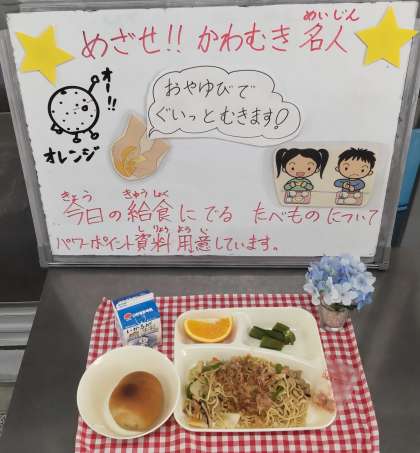 めざせ!! かわむき名人
めいじん
オー!!
おやゆびで
ぐいっとむきます!
オレンジ
きょう きゅうしょく
今日の給食にでる たべものについて
しりょう ようい
パワーポイント資料 用意しています。